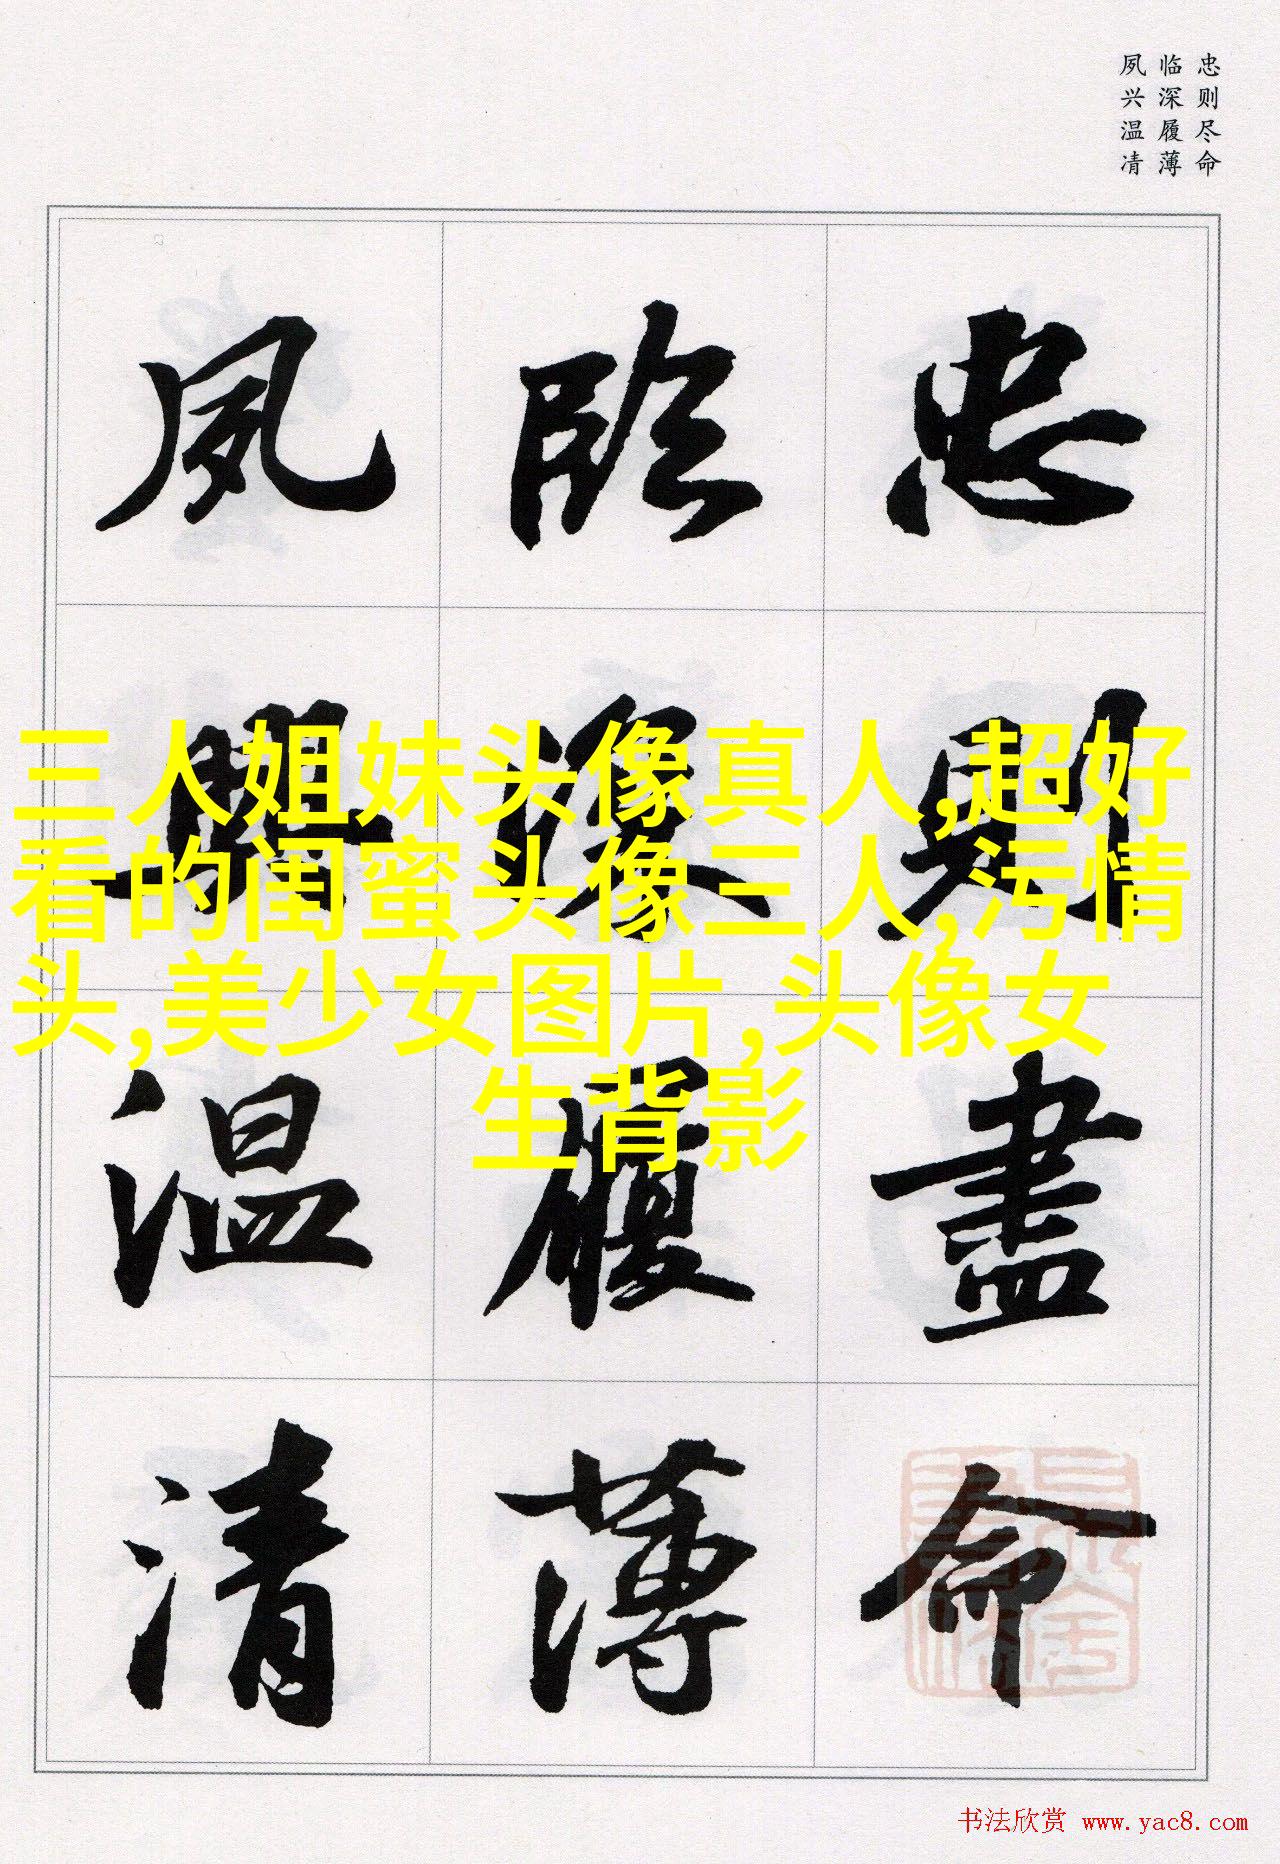 忠则尽命
临深履薄
夙兴温凊
忠則盡命
臨深履薄
夙興温凊
三人姐妹头像真人,超好
看的闺蜜头像三人,污情
头,美少女图片,头像女
生背影
书法欣赏 www.yac8.com